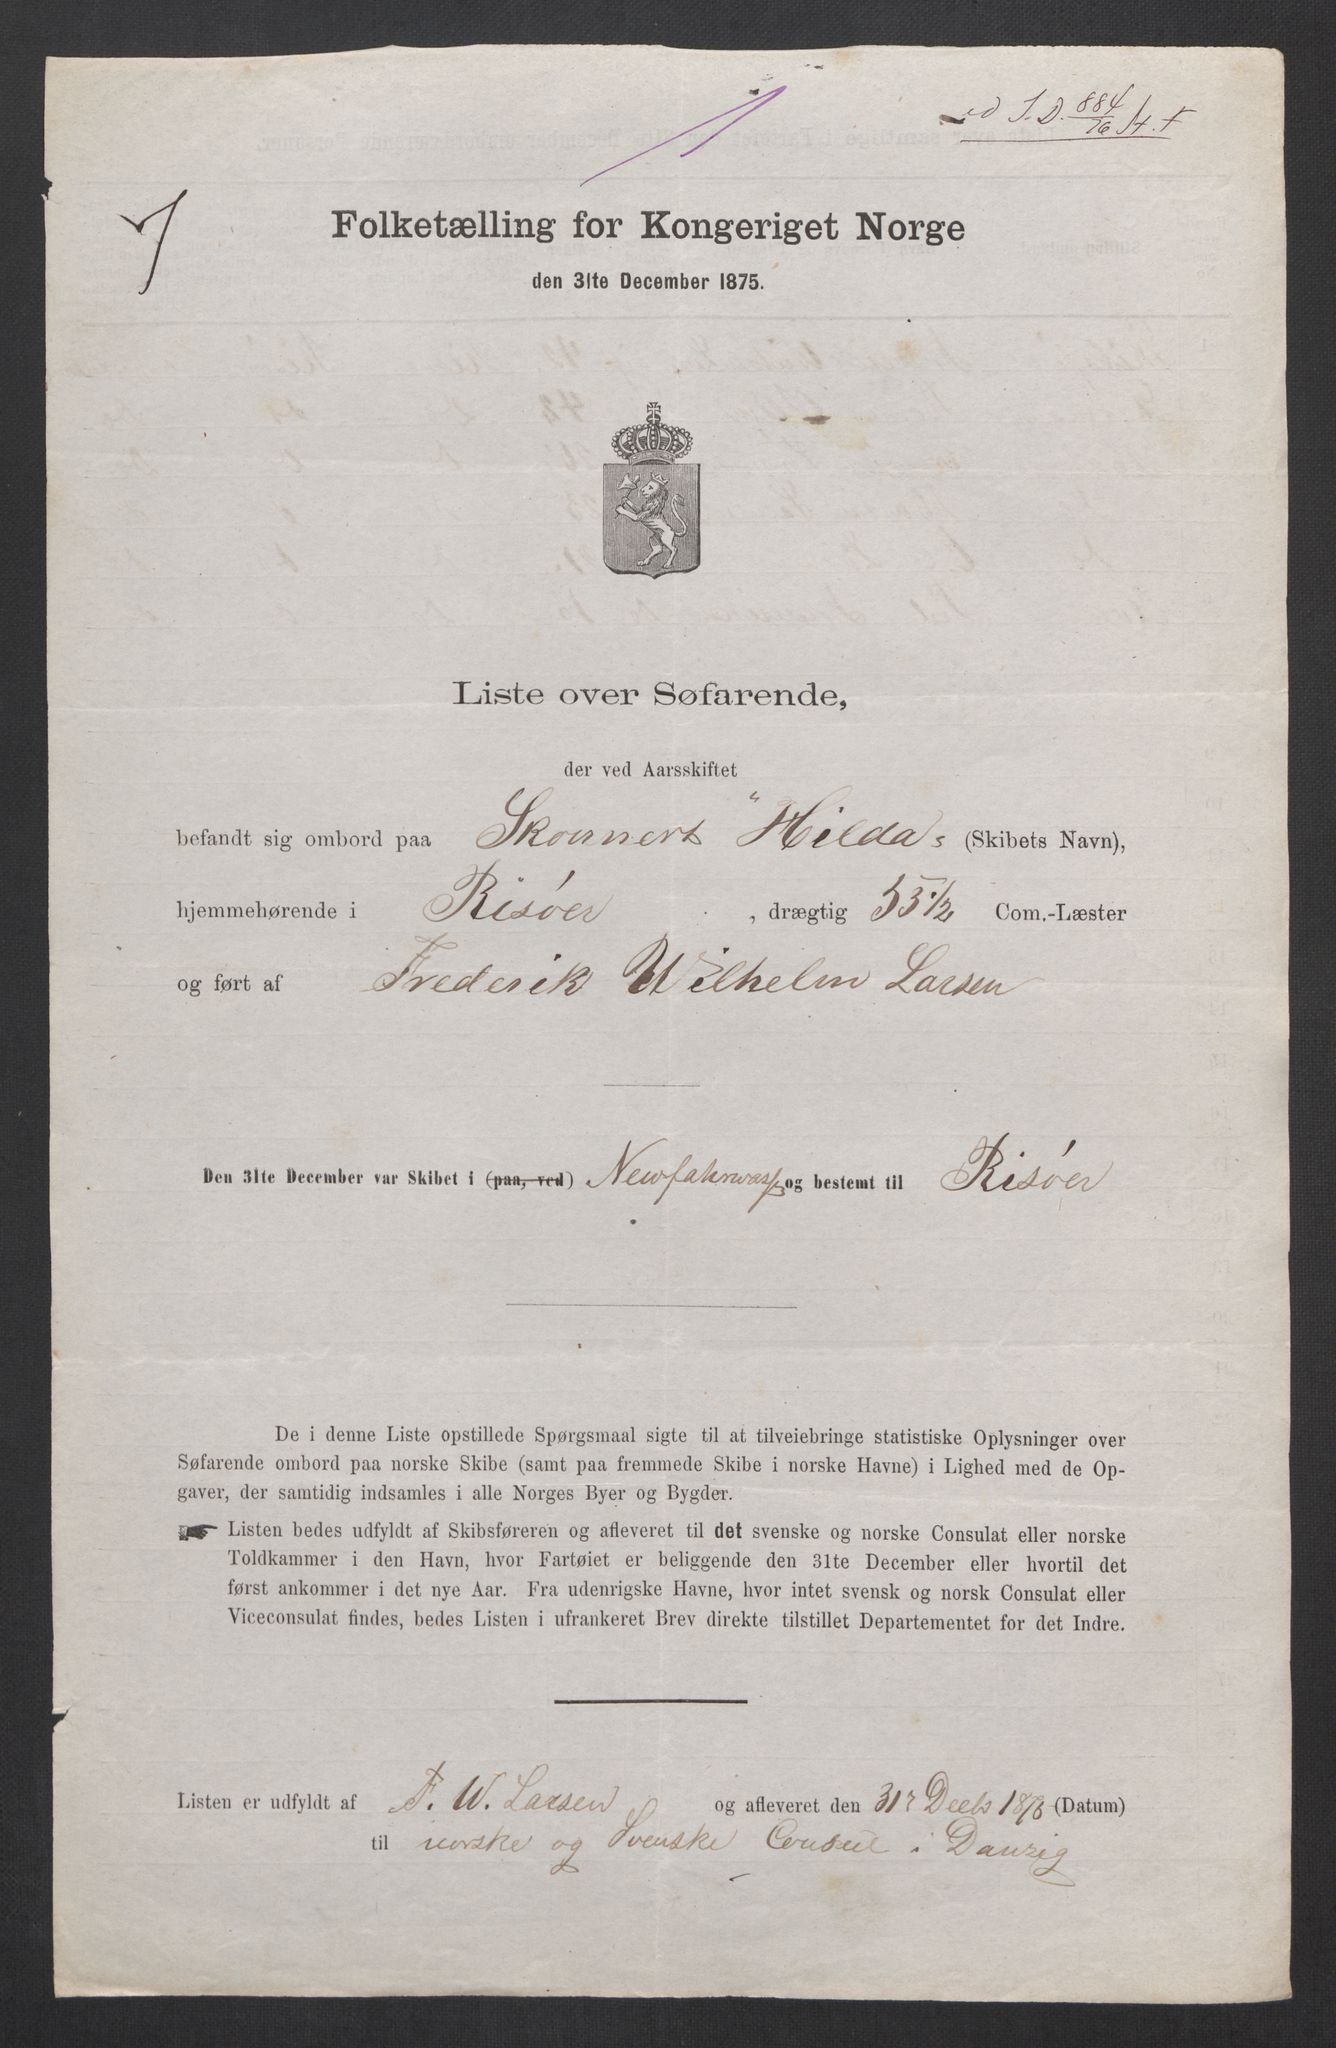 ad I. D. 884/76 A. F
7
Folketælling for Kongeriget Norge
den 31te December 1875.
Liste over Søfarende,
der ved Aarsskiftet
befandt sig ombord paa Skonnert "Hilda" (Skibets Navn),
hjemmehørende i Risøer, drægtig 55 1/2 Com.-Læster
og ført af Frederik Wilhelm Larsen
Den 31te December var Skibet i (paa, ved) Newfahrwass og bestemt til Risøer
De i denne Liste opstillede Spørgsmaal sigte til at tilveiebringe statistiske Oplysninger over
Søfarende ombord paa norske Skibe (samt paa fremmede Skibe i norske Havne) i Lighed med de Op-
gaver, der samtidig indsamles i alle Norges Byer og Bygder.
Listen bedes udfyldt af Skibsføreren og afleveret til det svenske og norske Consulat eller norske
Toldkammer i den Havn, hvor Fartøiet er beliggende den 31te December eller hvortil det
først ankommer i det nye Aar. Fra udenrigske Havne, hvor intet svensk og norsk Consulat eller
Viceconsulat findes, bedes Listen i ufrankeret Brev direkte tilstillet Departementet for det Indre.
Listen er udfyldt af F. W. Larsen og afleveret den 31 Decb 1875 (Datum)
til norske og Svenske Consul i Danzig